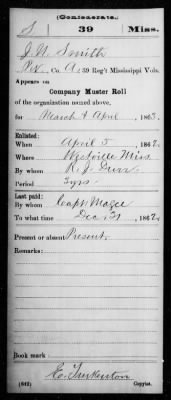 (Confederate.)
S 39 Miss.
J. W. Smith
Pvt., Co. A, 39 Reg't Mississippi Vols.
Appears on
Company Muster Roll
of the organization named above,
for March & April, 1863.
Enlisted:
When April 5, 1862.
Where Westville Miss.
By whom R. J. Durr
Period 3 yrs
Last paid:
By whom Capt Magee
To what time Dec 31, 1862.
Present or absent Present.
Remarks:
Book mark:
(642) Copyist.